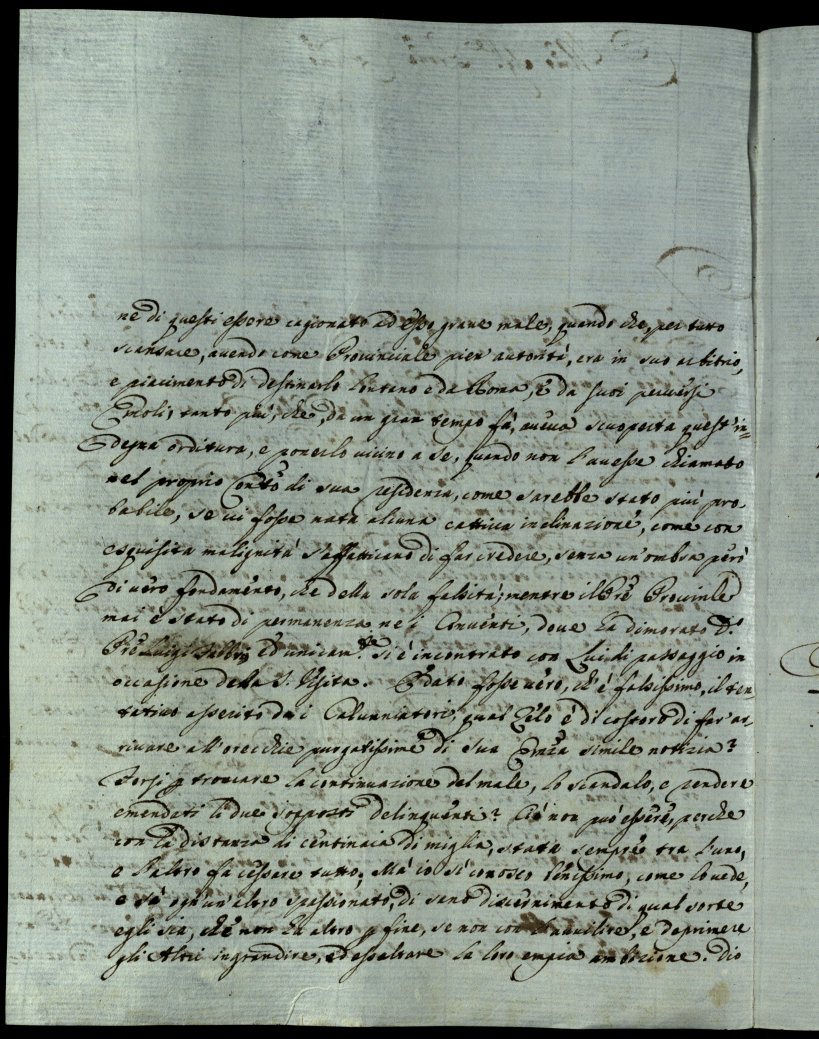 ne di questi essere cagionato ad esso graue male, quando che, per tutto
scansare, auendo come Prouinciale pien' autorità, era in suo arbitrio,
e piacimento di destinarlo lontano e da Roma, e da suoi peruersi
Emoli; tanto più, che, da un gran tempo fà, aueua scuoperta quest' in=
degna orditura, e ponerlo uicino a se, quando non l'auesse chiamato
nel proprio Conu.to di sua residenza, come sarebbe stato più pro-
babile, se ui fosse nata alcuna cattiua inclinazione, come con
esquisita malignità s'affatticano di far credere, senza un'ombra però
di uero fondamento, che della sola falsità; mentre il Pre Prouinle
mai è stato di permanenza ne i Conuenti, doue hà dimorato d.o
Pre Luigi ed unicam.te si è incontrato con Lui di passaggio in
occasione della S. Visita. E dato fosse uero, ch'è falsissimo, il ten=
tatiuo asserito da i Calunniatori, qual Zelo è di costoro di far ar=
riuare all'orecchie purgatissime di Sua Emza simile notizia?
Forsi p troncare la continuazione del male, lo scandalo, e rendere
emendati li due supposti delinquenti? Ciò non può essere, perche
con la distanza di centinaia di miglia, stata sempre tra l'uno,
e l'altro fà cessare tutto. Mà io sì conosco benissimo, come lo uede,
e sà ogn'un'altro spassionato, di sano discernimento di qual sorte
egli sia, che non hà altro p fine, se non con l'auuilire, e deprimere
gli Altri ingrandire, ed essaltare la loro empia ambizione. Dio